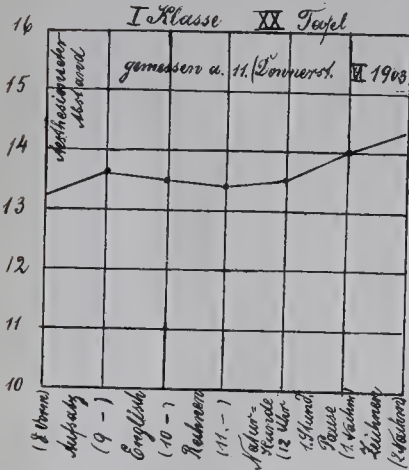 I Klasse XX Tafel
gemessen a. 11./Donnerst. VI 1903
Aesthesiometer
Abstand
16
15
14
13
12
11
10
(8 Vorm)
Aufsatz
(9 -)
Englisch
(10 -)
Rechnen
(11. -)
Natur=
Kunde
(12 Uhr)
1. Stund.
Pause
(1. Nachm)
Zeichnen
(2 Nachm)